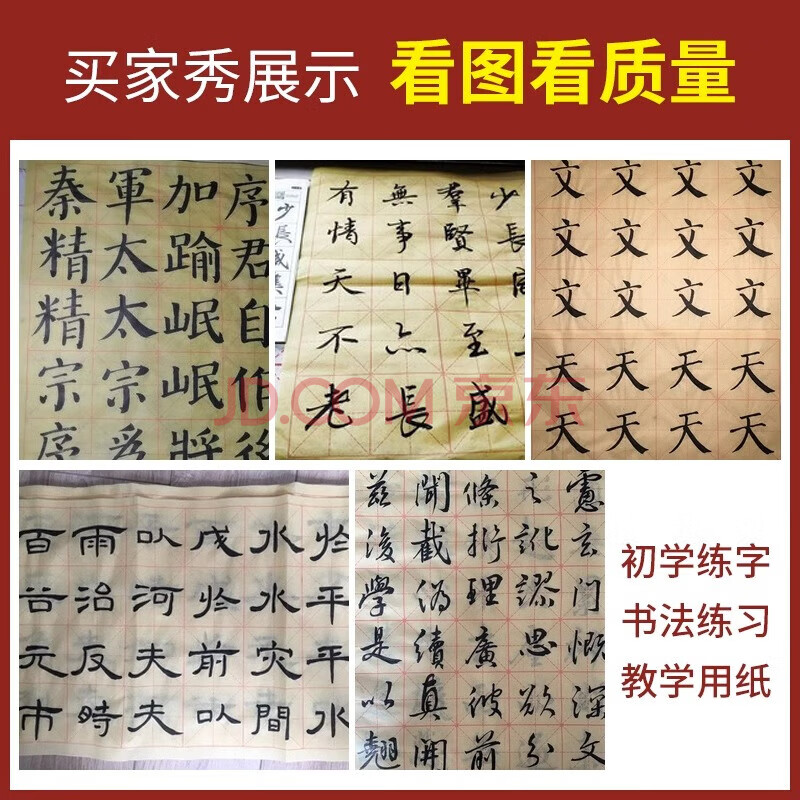 买家秀展示 看图看质量
秦軍加序
精太踰君
精太岷自
宗宗岷作
序爲將後
有無羣少
情事賢長
天日畢
不亦至
老長盛
少長咸集
文文文文
文文文文
文文文文
天天天天
天天天天
JD.COM 京东
百雨以戊水於
谷治河於水平
元反夫前灾平
市時夫以間水
茲聞條之慮
後截析訛玄
學偽理謬门
是續廣思慨
以真彼欲深
翹開前分文
初学练字
书法练习
教学用纸